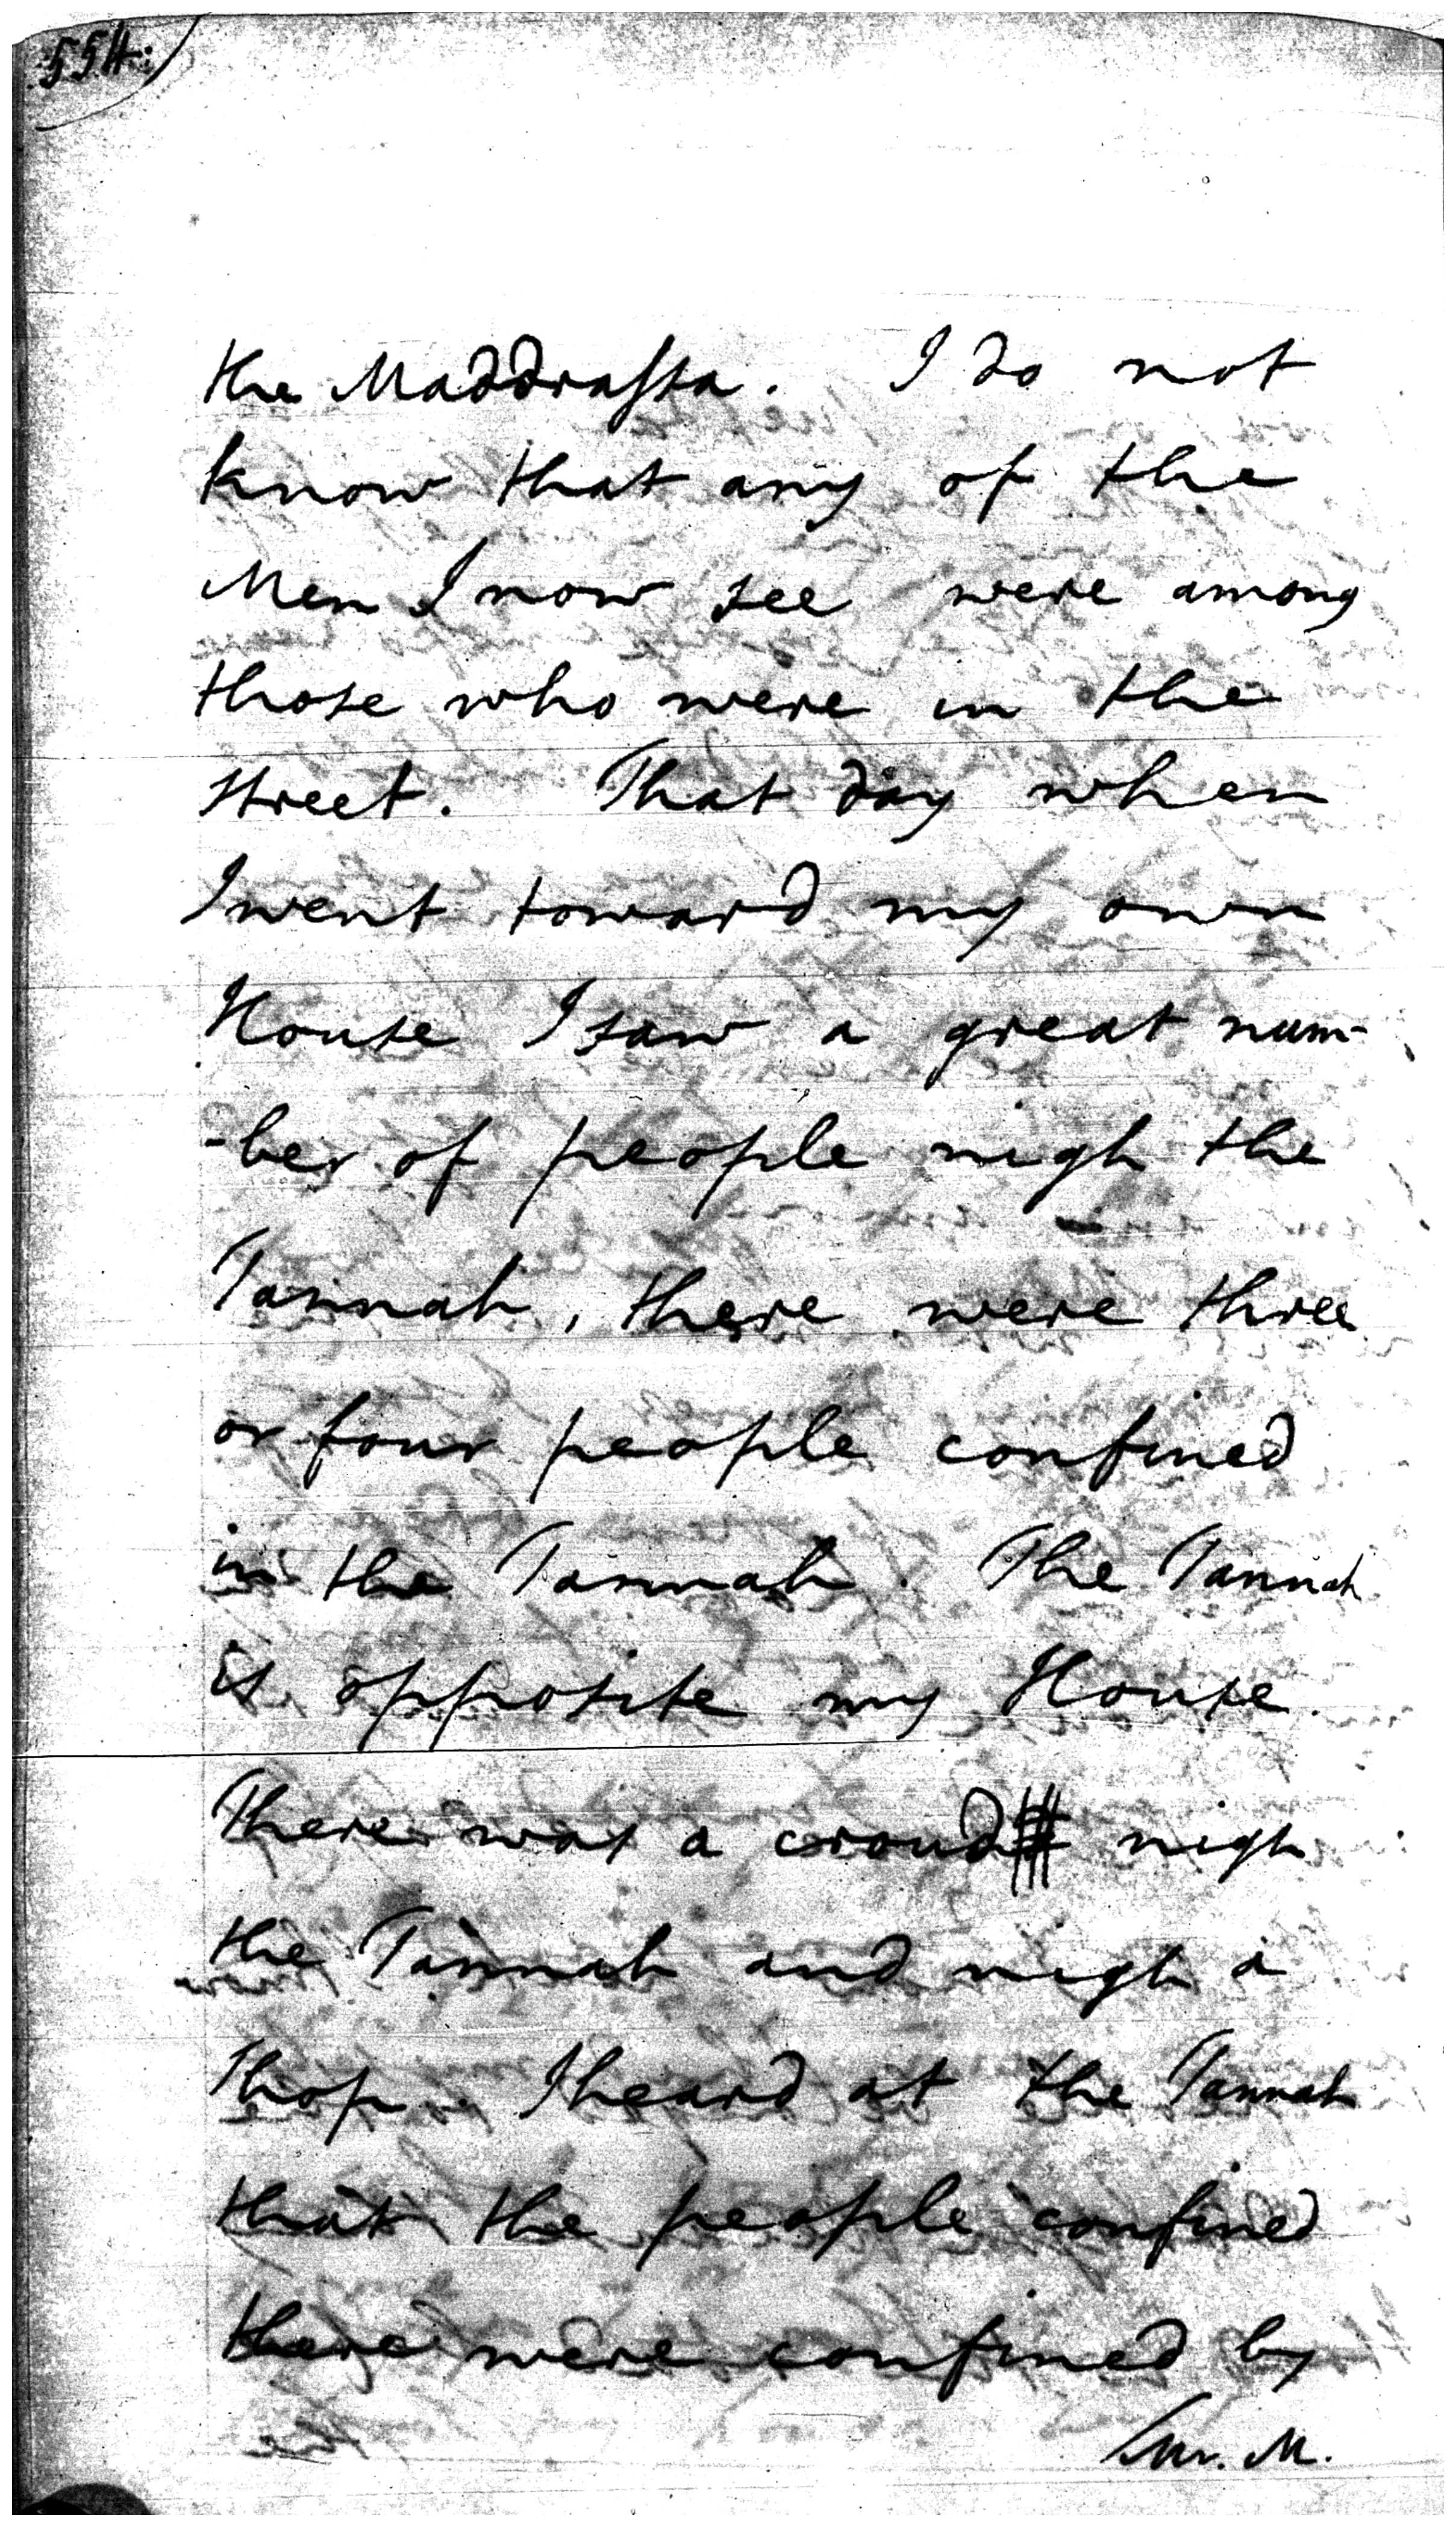 554.
the Maddrassa. I do not
know that any of the
Men I now see were among
those who were in the
street. That day when
I went toward my own
House I saw a great num-
-ber of people nigh the
Tannah, there were three
or four people confined
in the Tannah. The Tannah
is opposite my House.
There was a croud nigh
the Tannah and nigh a
shop. I heard at the Tannah
that the people confined
there were confined by
Mr. M.